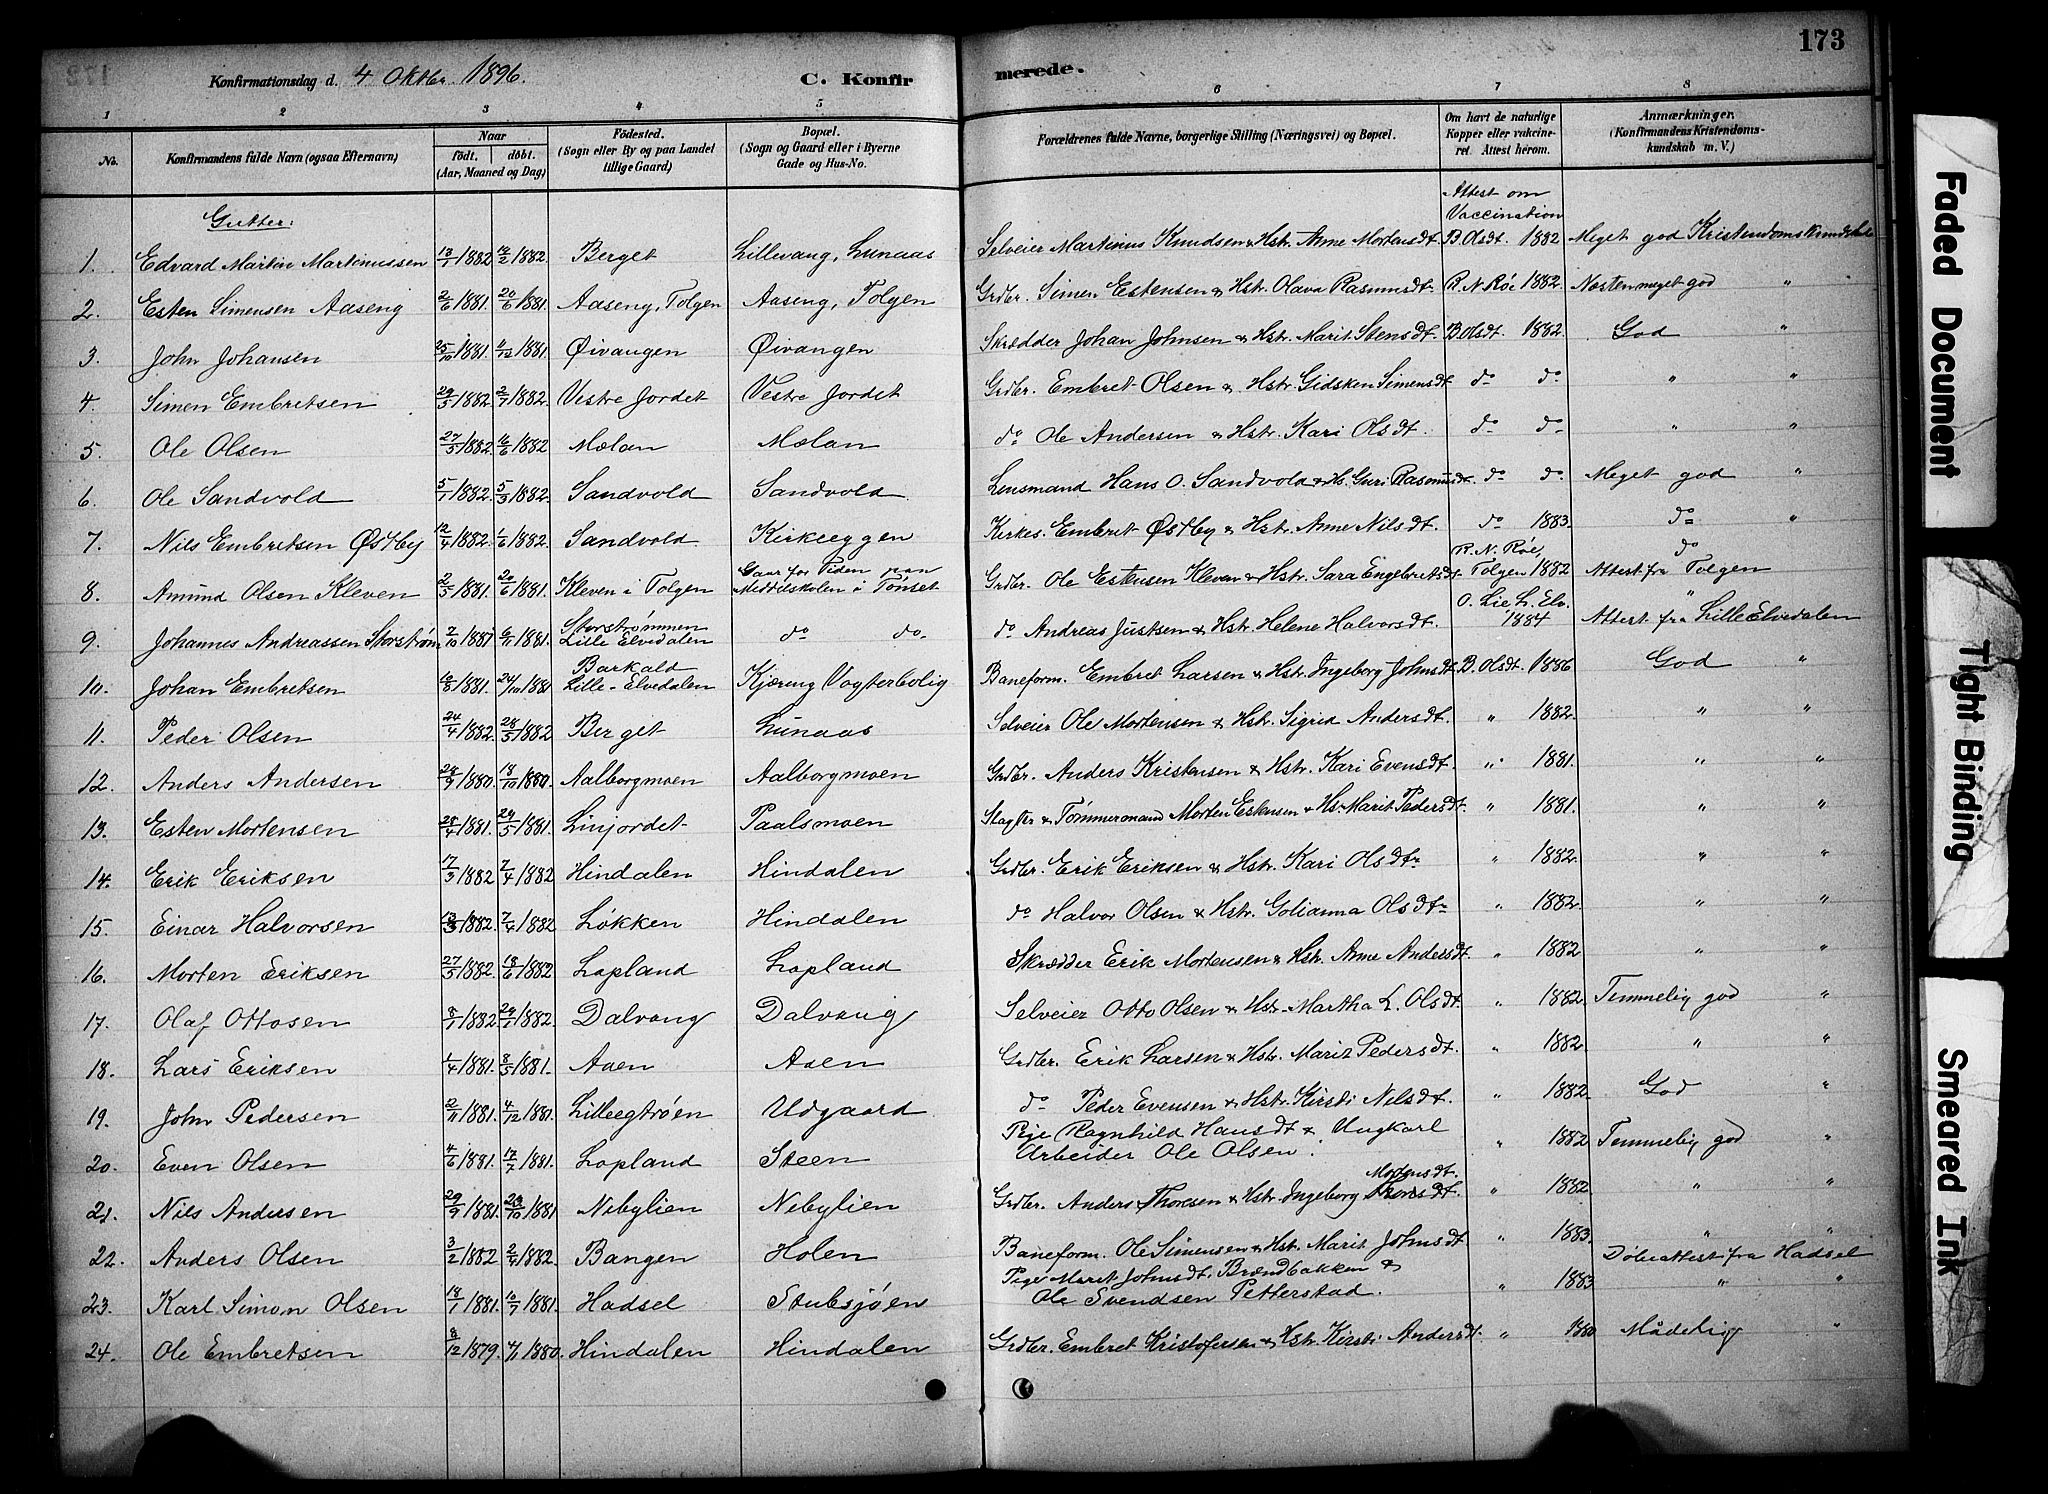 173
Konfirmationsdag d. 4 Oktbr. 1896.
C. Konfir
merede.
1 2 3 4 5 6 7 8
No.
Konfirmandens fulde Navn (ogsaa Efternavn)
Naar
födt. döbt.
(Aar, Maaned og Dag)
Födested.
(Sogn eller By og paa Landet
tillige Gaard)
Bopæl.
(Sogn og Gaard eller i Byerne
Gade og Hus-No.
Forældrenes fulde Navne, borgerlige Stilling (Næringsvei) og Bopæl.
Om havt de naturlige
Kopper eller vaccine-
ret. Attest herom.
Anmærkninger.
(Konfirmandens Kristendoms-
kundskab m. V.)
Gutter:
Attest om
Vaccination
1. Edvard Martin Martinussen 13/1 1882 12/2 1882. Berget Lillevang, Lunaas Selveier Martinus Knudsen & Hstr. Anne Mortensdt. B. Olsdt. 1882 Meget god Kristendomskundskab
2. Esten Simensen Aaseng 2/6 1881. 20/6 1881. Aaseng, Tolgen Aaseng, Tolgen Grdbr. Simen Estensen & Hstr. Olava Rasmusdt. R. N. Röe 1882. Næsten meget god "
3. John Johansen 25/10 1881. 11/12 1881. Øivangen Øivangen Skrædder Johan Johnsen & Hstr. Marit Stensdt. B. Olsdt. 1882. God "
4. Simen Embretsen 29/5 1882. 2/7 1882. Vestre Jordet Vestre Jordet Grdbr. Embret Olsen & Hstr. Gidsken Simensdt. do do " "
5. Ole Olsen 27/5 1882. 16/6 1882 Mælan Mælan do Ole Andersen & Hstr. Kari Olsdt. do do " "
6. Ole Sandvold 5/1 1882. 5/3 1882. Sandvold Sandvold Lensmand Hans O. Sandvold & H. Guri Rasmusdt. do do Meget god "
7. Nils Embretsen Østby 12/4 1882. 1/6 1882. Sandvold. Kirkeeggen Kirkes. Embret Østby & Hstr. Anne Nilsdt. do 1883. do "
8. Amund Olsen Kleven 2/5 1881. 20/6 1881. Kleven i Tolgen Gaar for Tiden paa Middelskolen i Tönset Grdbr. Ole Estensen Kleven & Hstr. Sara Engebretsdt. R. N. Röe, Tolgen 1882 do Attest fra Tolgen
9. Johannes Andreassen Storström 7/10 1881 6/11 1881. Storströmmen Lille Elvedalen do do. do Andreas Justsen & Hstr. Helene Halvorsdt. O. Lie L. Elv. 1884 " Attest fra Lille Elvedalen
10. Johan Embretsen 16/8 1881. 24/10 1881 Barkald Lille-Elvedalen Kjæreng Vogterbolig Baneform. Embret Larsen & Hstr. Ingeborg Johnsdt. B. Olsdt. 1886 God "
11. Peder Olsen 24/4 1882. 28/5 1882 Berget Lunaas Selveier Ole Mortensen & Hstr. Sigrid Andersdt. " 1882. " "
12. Anders Andersen 28/9 1880. 18/10 1880. Aalborgmoen Aalborgmoen Grdbr. Anders Kristensen & Hstr. Kari Evensdt. " 1881. " "
13. Esten Mortensen 28/4 1881. 29/5 1881. Linjordet Paalsmoen Slagter & Tömmermand Morten Estensen & Hs. Marit Pedersdt. " 1881. " "
14. Erik Eriksen 17/3 1882 7/4 1882 Hindalen Hindalen Grdbr. Erik Eriksen & Hstr. Kari Olsdtr " 1882. " "
15. Einar Halvorsen 13/3 1882. 7/4 1882 Løkken Hindalen do Halvor Olsen & Hstr. Golianna Olsdtr " 1882. " "
16. Morten Eriksen 27/5 1882. 18/6 1882 Lopland Lopland Skrædder Erik Mortensen & Hstr. Anne Andersdt. " 1882 " "
17. Olaf Ottosen 8/1 1882. 29/1 1882. Dalvang Dalvang Selveier Otto Olsen & Hstr. Martha L. Olsdt. " 1882. Temmelig god "
18. Lars Eriksen 1/4 1881. 8/5 1881. Aaen Aaen Grdbr. Erik Larsen & Hstr. Marit Pedersdt. " 1882. " "
19. John Pedersen 2/11 1881. 4/12 1881. Lilleegtröen Udgaard do Peder Evensen & Hstr. Kirsti Nilsdt. " 1882. God "
20. Even Olsen 4/6 1881. 17/7 1881. Lopland Steen Pige Ragnhild Hansdt & Ungkarl
Arbeider Ole Olsen. " 1882 Temmelig god "
21. Nils Andersen 29/9 1881. 23/10 1881 Nebylien Nebylien Grdbr. Anders Thoresen & Hstr. Ingeborg Mortensdt. " 1882. " "
22. Anders Olsen 3/2 1882 2/4 1882. Bangen Holen Baneform. Ole Simensen & Hstr. Marit Johnsdt " 1883. " "
Döbeattest fra Hadsel
23. Karl Simon Olsen 18/1 1881. 10/7 1881. Hadsel Stubsjøen Pige Marit Johnsdt. Brændbakken &
Ole Svendsen Petterstad. " 1883 " "
24. Ole Embretsen 8/12 1879. 4/1 1880. Hindalen Hindalen Grdbr. Embret Kristofersen & Hstr. Kirsti Andersdt. " 1880 Mådelig "
Faded Document
Tight Binding
Smeared Ink